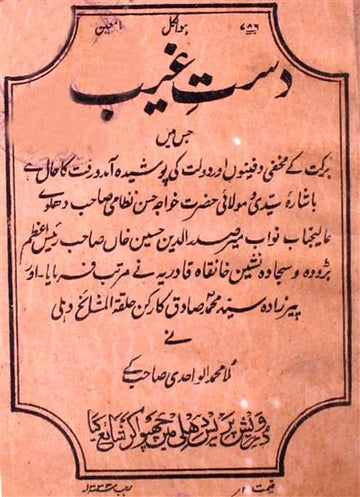 ۷۸۶ ہوالکل المعین
دستِ غیب
جس میں
برکت کے مخفی دفینوں اور دولت کی پوشیدہ آمدورفت کا حال ہے
باشارۂ سیدی و مولائی حضرت خواجہ حسن نظامی صاحب دھلوے
عالیجناب نواب میر صدرالدین حسین خاں صاحب رئیس اعظم
بڑودہ و سجادہ نشین خانقاہ قادریہ نے مرتب فرمایا۔ اور
پیرزادہ سید محمد صادق کارکن حلقۃ المشائخ دہلی
نے
ملا محمد الواحدی صاحب کے
درویش پریس دھلی میں چھپوا کر شایع کیا
قیمت ۲؍ رجب ۱۳۳۳ھ